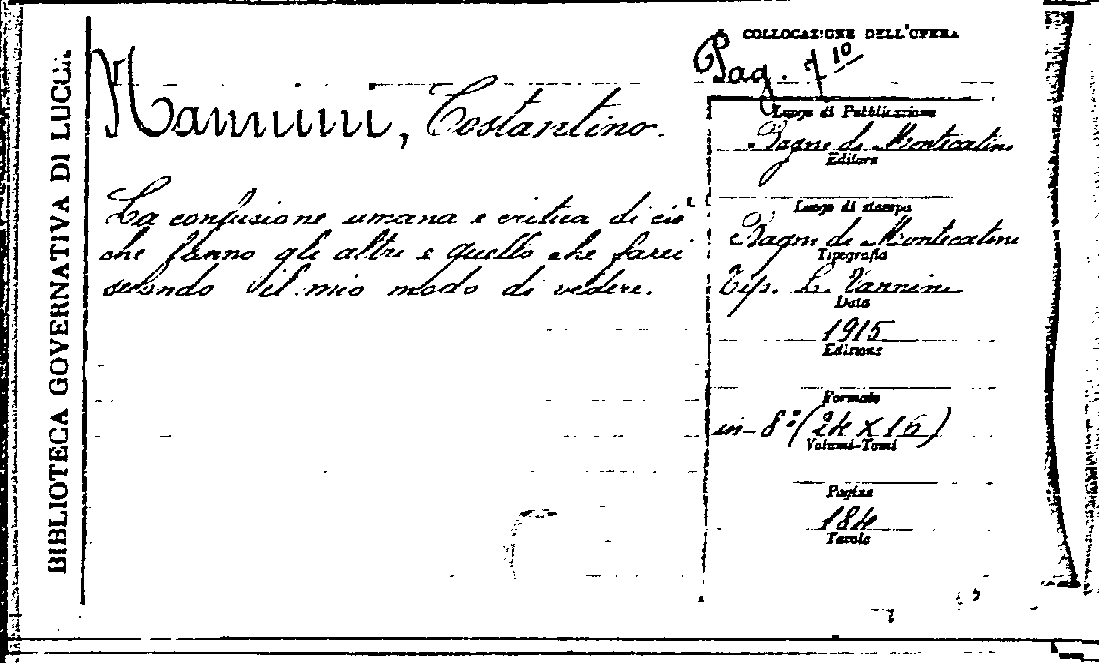 BIBLIOTECA GOVERNATIVA DI LUCCA
Nannini, Costantino.
La confusione umana e critica di ciò
che fanno gli altri e quello che farei
secondo il mio modo di vedere.
COLLOCAZIONE DELL'OPERA
Pag. 7 10
Luogo di Pubblicazione
Bagni di Montecatini
Editore
Luogo di stampa
Bagni di Montecatini
Tipografia
Tip. L. Vannini
Data
1915
Edizione
Formato
in-8º (24 x 16)
Volumi-Tomi
Pagine
184
Tavole